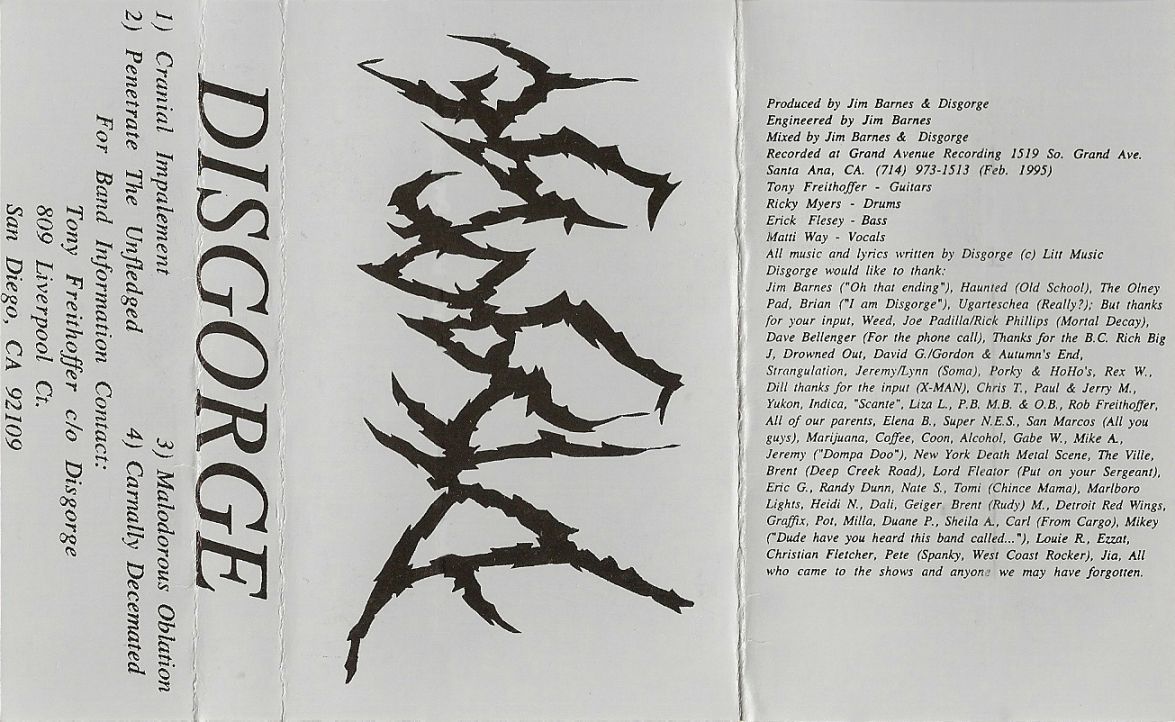 1) Cranial Impalement
2) Penetrate The Unfledged
3) Malodorous Oblation
4) Carnally Decemated
For Band Information Contact:
Tony Freithoffer c/o Disgorge
809 Liverpool Ct.
San Diego, CA 92109
DISGORGE
Produced by Jim Barnes & Disgorge
Engineered by Jim Barnes
Mixed by Jim Barnes & Disgorge
Recorded at Grand Avenue Recording 1519 So. Grand Ave.
Santa Ana, CA. (714) 973-1513 (Feb. 1995)
Tony Freithoffer - Guitars
Ricky Myers - Drums
Erick Flesey - Bass
Matti Way - Vocals
All music and lyrics written by Disgorge (c) Litt Music
Disgorge would like to thank:
Jim Barnes ("Oh that ending"), Haunted (Old School), The Olney
Pad, Brian ("I am Disgorge"), Ugarteschea (Really?); But thanks
for your input, Weed, Joe Padilla/Rick Phillips (Mortal Decay),
Dave Bellenger (For the phone call), Thanks for the B.C. Rich Big
J, Drowned Out, David G./Gordon & Autumn's End,
Strangulation, Jeremy/Lynn (Soma), Porky & HoHo's, Rex W.,
Dill thanks for the input (X-MAN), Chris T., Paul & Jerry M.,
Yukon, Indica, "Scante", Liza L., P.B. M.B. & O.B., Rob Freithoffer,
All of our parents, Elena B., Super N.E.S., San Marcos (All you
guys), Marijuana, Coffee, Coon, Alcohol, Gabe W., Mike A.,
Jeremy ("Dompa Doo"), New York Death Metal Scene, The Ville,
Brent (Deep Creek Road), Lord Fleator (Put on your Sergeant),
Eric G., Randy Dunn, Nate S., Tomi (Chince Mama), Marlboro
Lights, Heidi N., Dali, Geiger Brent (Rudy) M., Detroit Red Wings,
Graffix, Pot, Milla, Duane P., Sheila A., Carl (From Cargo), Mikey
("Dude have you heard this band called..."), Louie R., Ezzat,
Christian Fletcher, Pete (Spanky, West Coast Rocker), Jia, All
who came to the shows and anyone we may have forgotten.